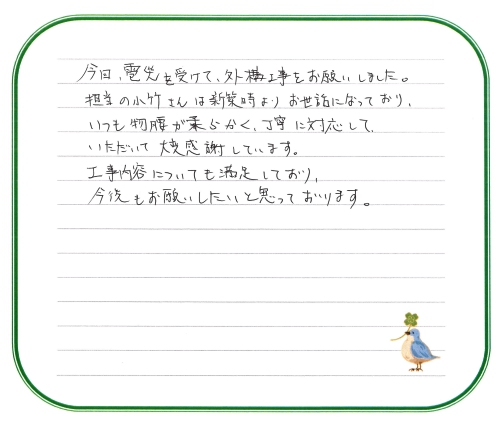 今回、震災を受けて、外構工事をお願いしました。
担当の小竹さんは新築時よりお世話になっており、
いつも物腰が柔らかく、丁寧に対応して、
いただいて大変感謝しています。
工事内容についても満足しており、
今後もお願いしたいと思っております。